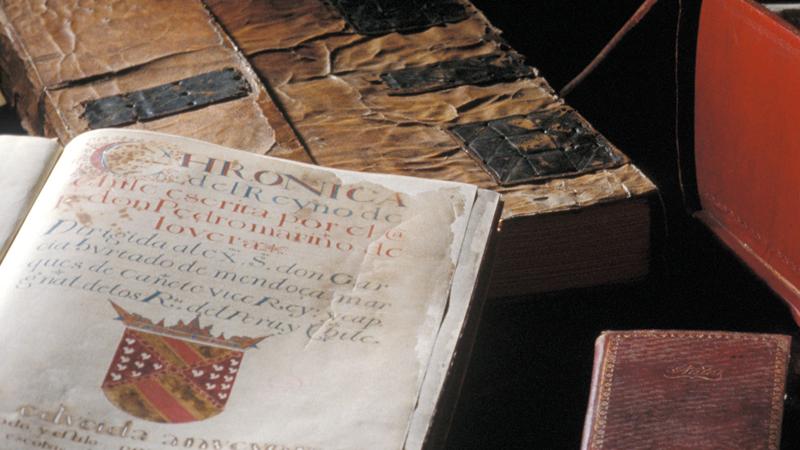 CHRONICA
del Reyno de
Chile escrita por el Ca
p. don Pedro mariño de
lovera
Dirigida al ex. S. don Gar
cia hurtado de mendoça mar
ques de cañete vice Rey: y cap.
gnal de los R. del Peru, y Chile.